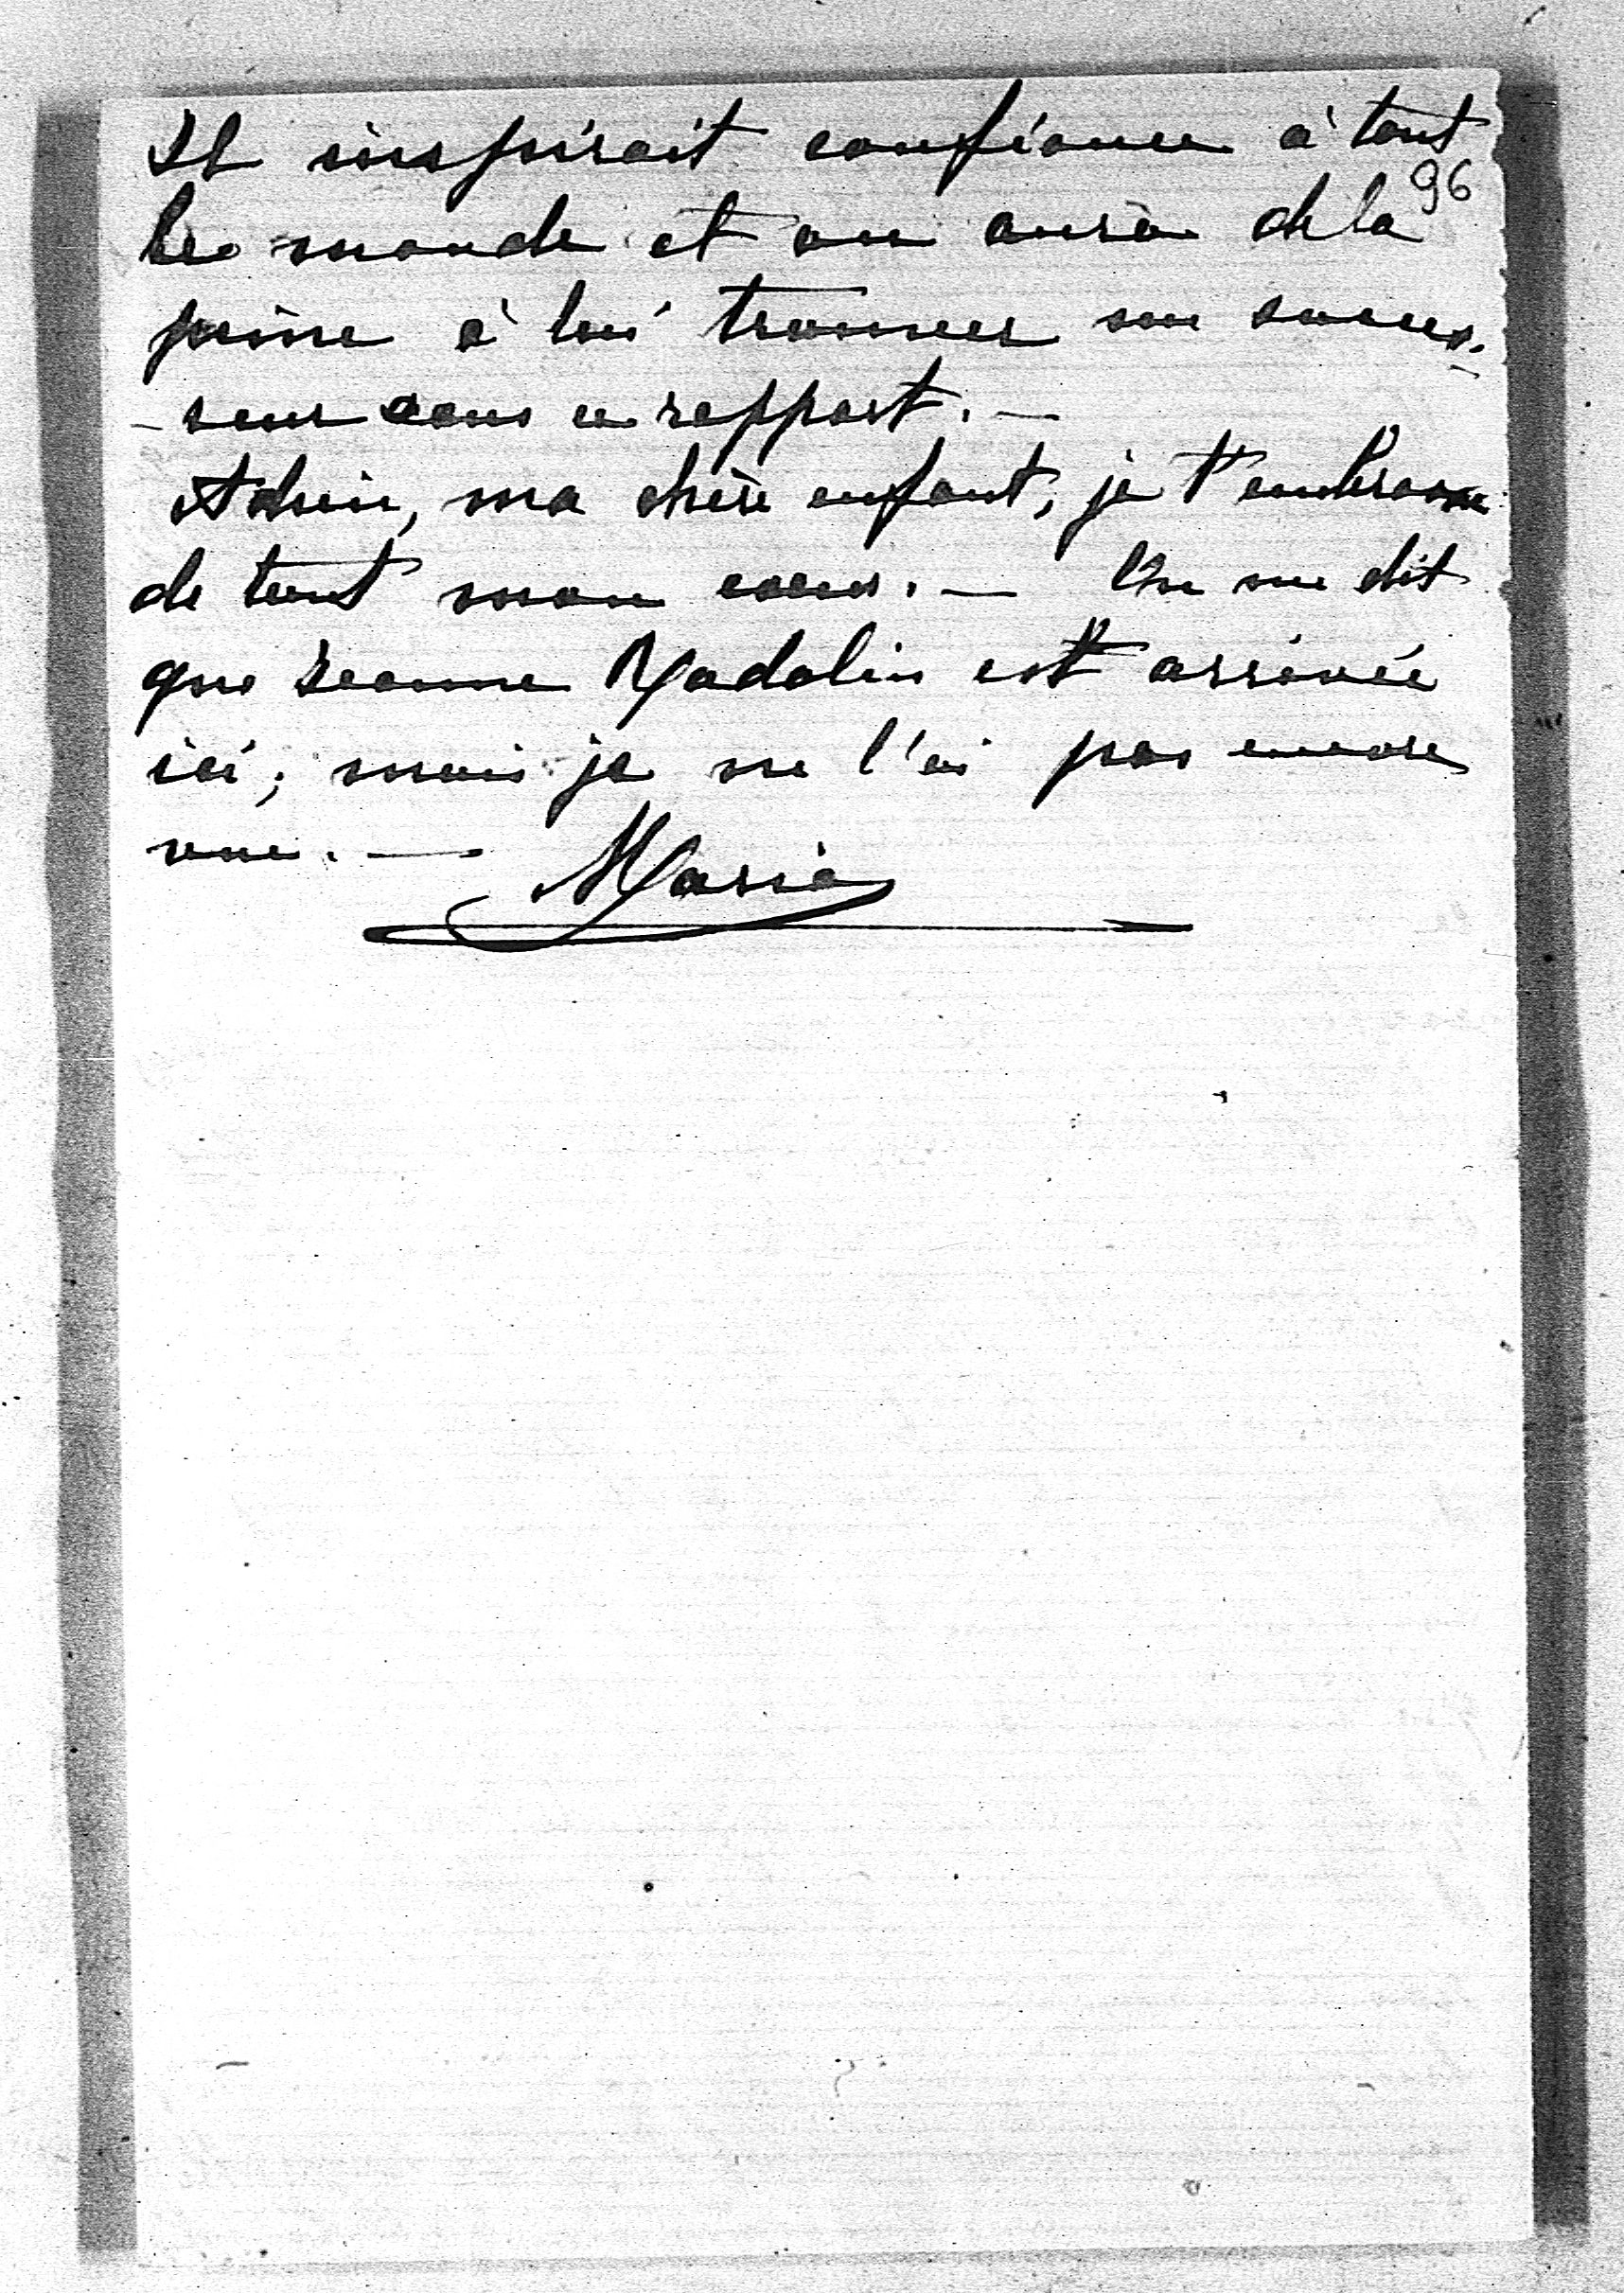 Il inspirait confiance à tout
96
le monde et on aura de la
peine à lui trouver son succes-
-seur sous ce rapport. —
Adieu, ma chère enfant, je t'embrasse
de tout mon coeur. — On me dit
que Jeanne Madalin est arrivée
ici; mais je ne l'ai pas encore
vue. —
Maria